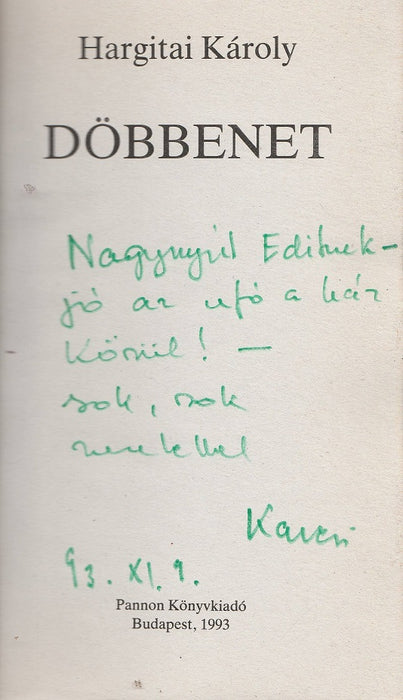 Hargitai Károly
DÖBBENET
Nagynyúl Editnek –
jó az ufó a ház
Körül! —
sok, sok
szeretettel
Karcsi
93. XI. 9.
Pannon Könyvkiadó
Budapest, 1993